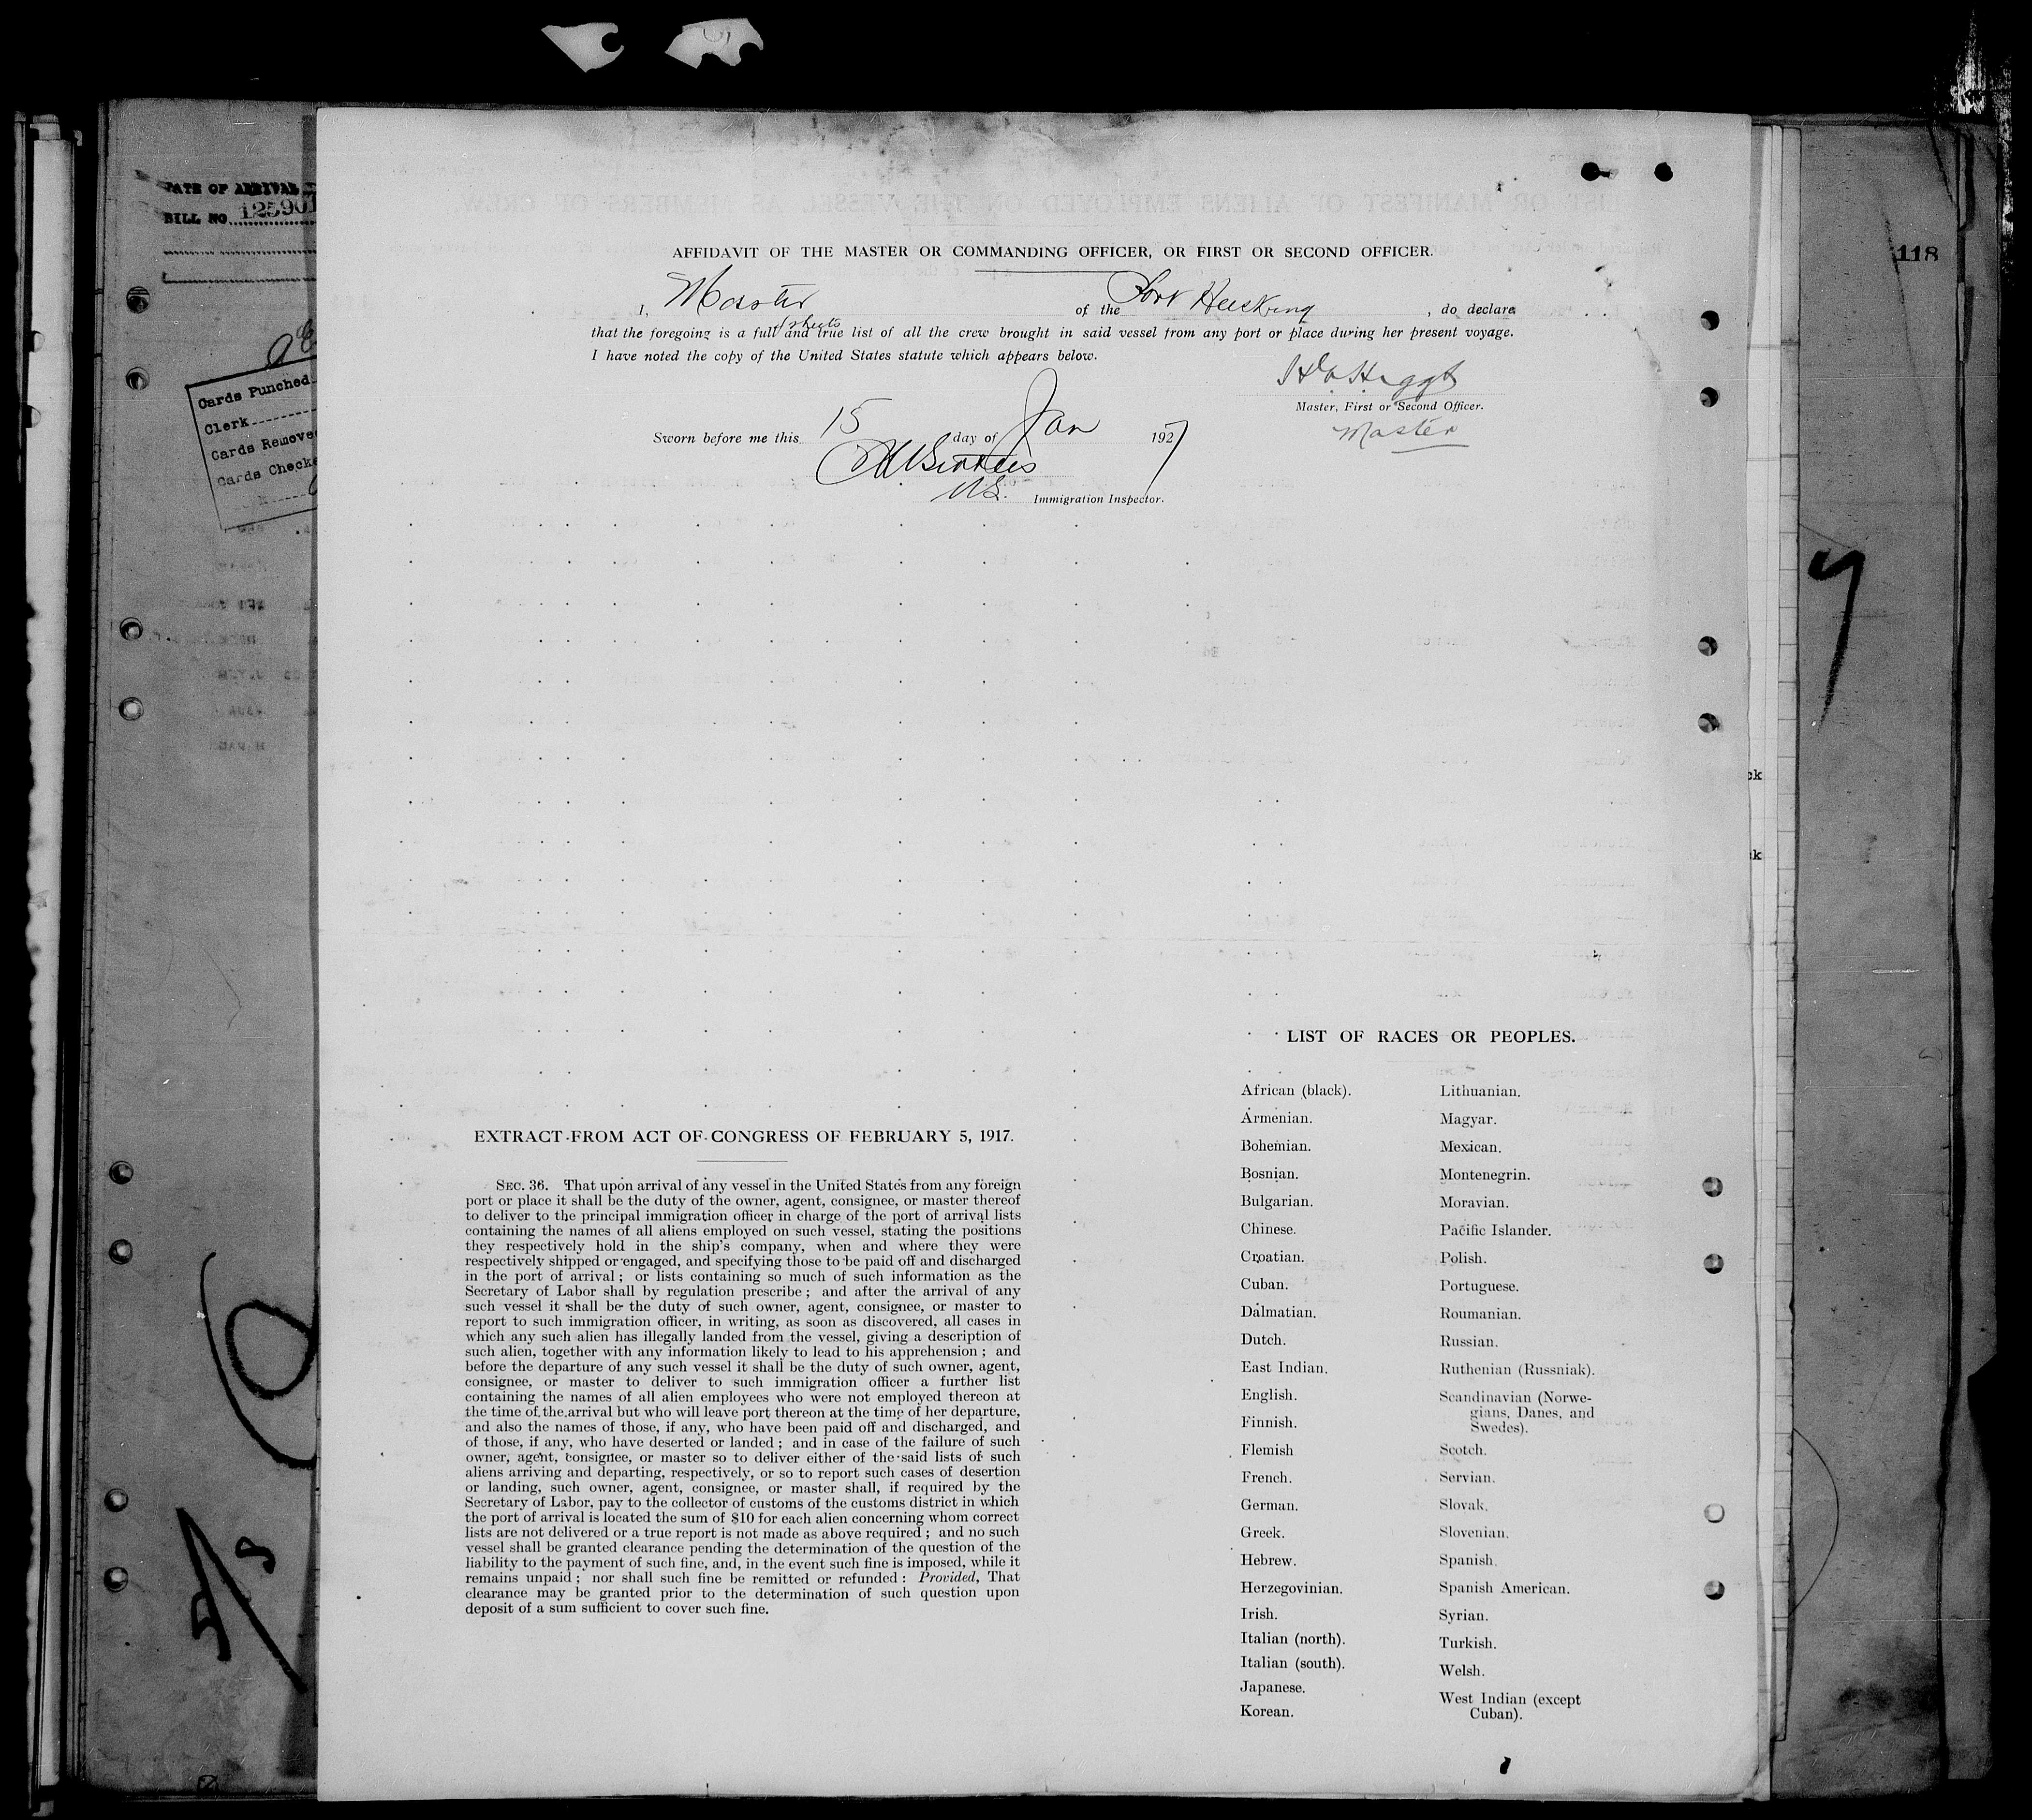 DATE OF ARRIVAL
BILL NO. 125901
118
Cards Punched
Clerk
Cards Removed
Cards Checke
AFFIDAVIT OF THE MASTER OR COMMANDING OFFICER, OR FIRST OR SECOND OFFICER.
I, Master of the Port , do declare
sheets
that the foregoing is a full and true list of all the crew brought in said vessel from any port or place during her present voyage.
I have noted the copy of the United States statute which appears below.
Master, First or Second Officer.
Master
Sworn before me this 15 day of Jan 1927
Immigration Inspector.
ck
k
LIST OF RACES OR PEOPLES.
African (black).
Armenian.
Bohemian.
Bosnian.
Bulgarian.
Chinese.
Croatian.
Cuban.
Dalmatian.
Dutch.
East Indian.
English.
Finnish.
Flemish
French.
German.
Greek.
Hebrew.
Herzegovinian.
Irish.
Italian (north).
Italian (south).
Japanese.
Korean.
Lithuanian.
Magyar.
Mexican.
Montenegrin.
Moravian.
Pacific Islander.
Polish.
Portuguese.
Roumanian.
Russian.
Ruthenian (Russniak).
Scandinavian (Norwe-
gians, Danes, and
Swedes).
Scotch.
Servian.
Slovak.
Slovenian.
Spanish.
Spanish American.
Syrian.
Turkish.
Welsh.
West Indian (except
Cuban).
EXTRACT FROM ACT OF CONGRESS OF FEBRUARY 5, 1917.
SEC. 36. That upon arrival of any vessel in the United States from any foreign
port or place it shall be the duty of the owner, agent, consignee, or master thereof
to deliver to the principal immigration officer in charge of the port of arrival lists
containing the names of all aliens employed on such vessel, stating the positions
they respectively hold in the ship's company, when and where they were
respectively shipped or engaged, and specifying those to be paid off and discharged
in the port of arrival; or lists containing so much of such information as the
Secretary of Labor shall by regulation prescribe; and after the arrival of any
such vessel it shall be the duty of such owner, agent, consignee, or master to
report to such immigration officer, in writing, as soon as discovered, all cases in
which any such alien has illegally landed from the vessel, giving a description of
such alien, together with any information likely to lead to his apprehension; and
before the departure of any such vessel it shall be the duty of such owner, agent,
consignee, or master to deliver to such immigration officer a further list
containing the names of all alien employees who were not employed thereon at
the time of the arrival but who will leave port thereon at the time of her departure,
and also the names of those, if any, who have been paid off and discharged, and
of those, if any, who have deserted or landed; and in case of the failure of such
owner, agent, consignee, or master so to deliver either of the said lists of such
aliens arriving and departing, respectively, or so to report such cases of desertion
or landing, such owner, agent, consignee, or master shall, if required by the
Secretary of Labor, pay to the collector of customs of the customs district in which
the port of arrival is located the sum of $10 for each alien concerning whom correct
lists are not delivered or a true report is not made as above required; and no such
vessel shall be granted clearance pending the determination of the question of the
liability to the payment of such fine, and, in the event such fine is imposed, while it
remains unpaid; nor shall such fine be remitted or refunded: Provided, That
clearance may be granted prior to the determination of such question upon
deposit of a sum sufficient to cover such fine.